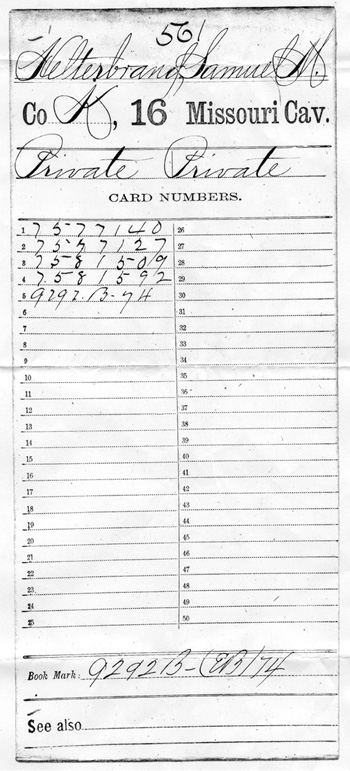 561
Helterbrand, Samuel M.
Co K, 16 Missouri Cav.
Private Private
CARD NUMBERS.
1 75777140 26
2 75777127 27
3 7581509 28
4 7581592 29
5 9292-B-74 30
6 31
7 32
8 33
9 34
10 35
11 36
12 37
13 38
14 39
15 40
16 41
17 42
18 43
19 44
20 45
21 46
22 47
23 48
24 49
25 50
Book Mark: 9292B-(EB)74
See also